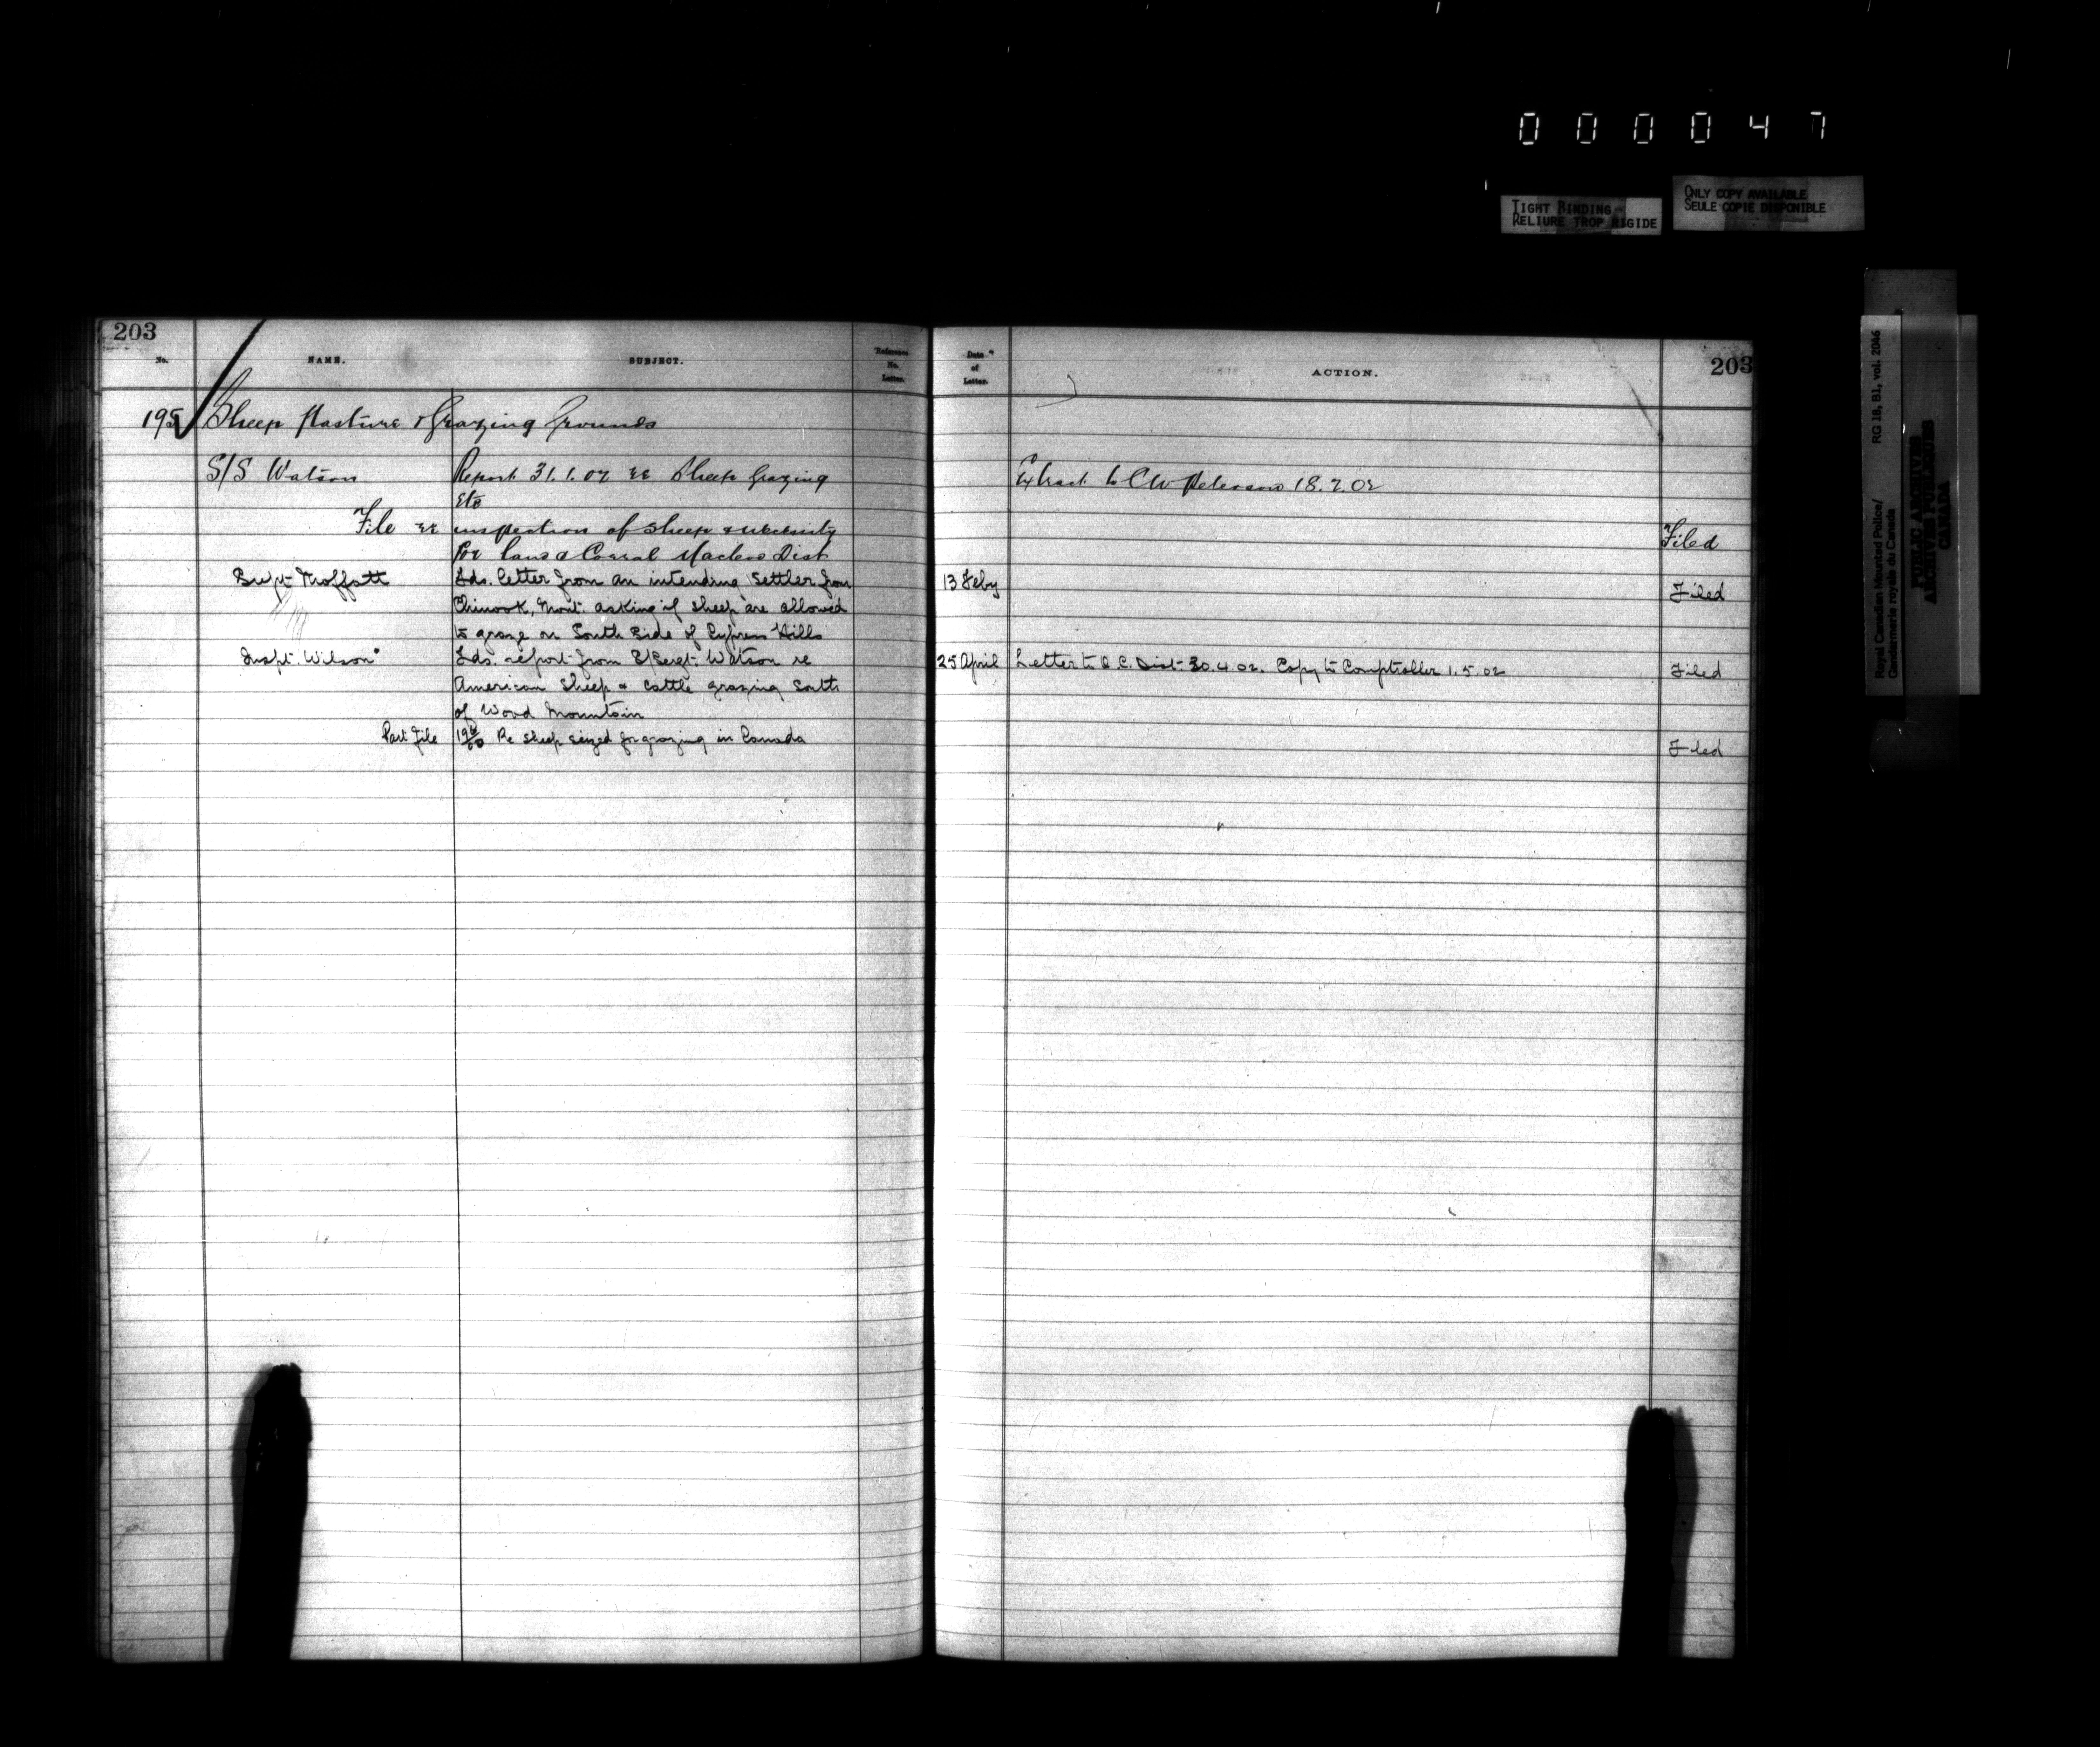 0 0 0 0 4 7
TIGHT BINDING
RELIURE TROP RIGIDE
ONLY COPY AVAILABLE
SEULE COPIE DISPONIBLE
203
No.
NAME.
SUBJECT.
Reference No. Letter.
Date of Letter.
ACTION.
203
195 Sheep Pasture & Grazing Grounds
S/S Watson Report 31.1.02 re Sheep Grazing
Etc
Extract to CW Peterson 18.2.02
File re inspection of Sheep & necessity
for Corral Macleod Dist
Filed
Supt Moffatt Fds. letter from an intending settler from
Chinook, Mont. asking if sheep are allowed
to graze on South Side of Cypress Hills
13 Feby
Filed
Inspt. Wilson Fds. report from S/Sergt. Watson re
American Sheep & cattle grazing South
of Wood Mountain
25 April Letter to O.C. Dist 30.4.02. Copy to Comptroller 1.5.02
Filed
Part File Re sheep seized for grazing in Canada
Filed
Royal Canadian Mounted Police/ RG 18, B1, vol. 2046
Gendarmerie royale du Canada
PUBLIC ARCHIVES
ARCHIVES PUBLIQUES
CANADA